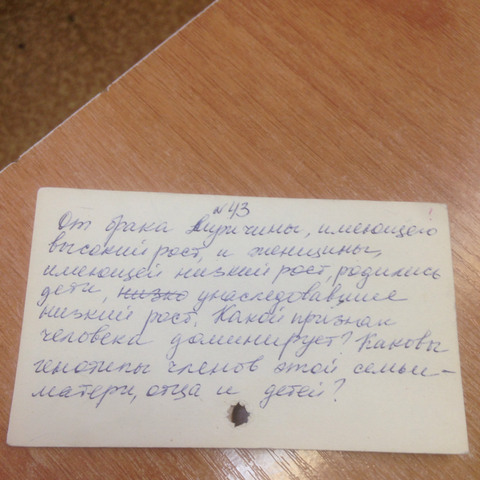 №43
От брака мужчины, имеющего
высокий рост, и женщины,
имеющей низкий рост, родились
дети, низко унаследовавшие
низкий рост. Какой признак
человека доминирует? Каковы
генотипы членов этой семьи -
матери, отца и детей?